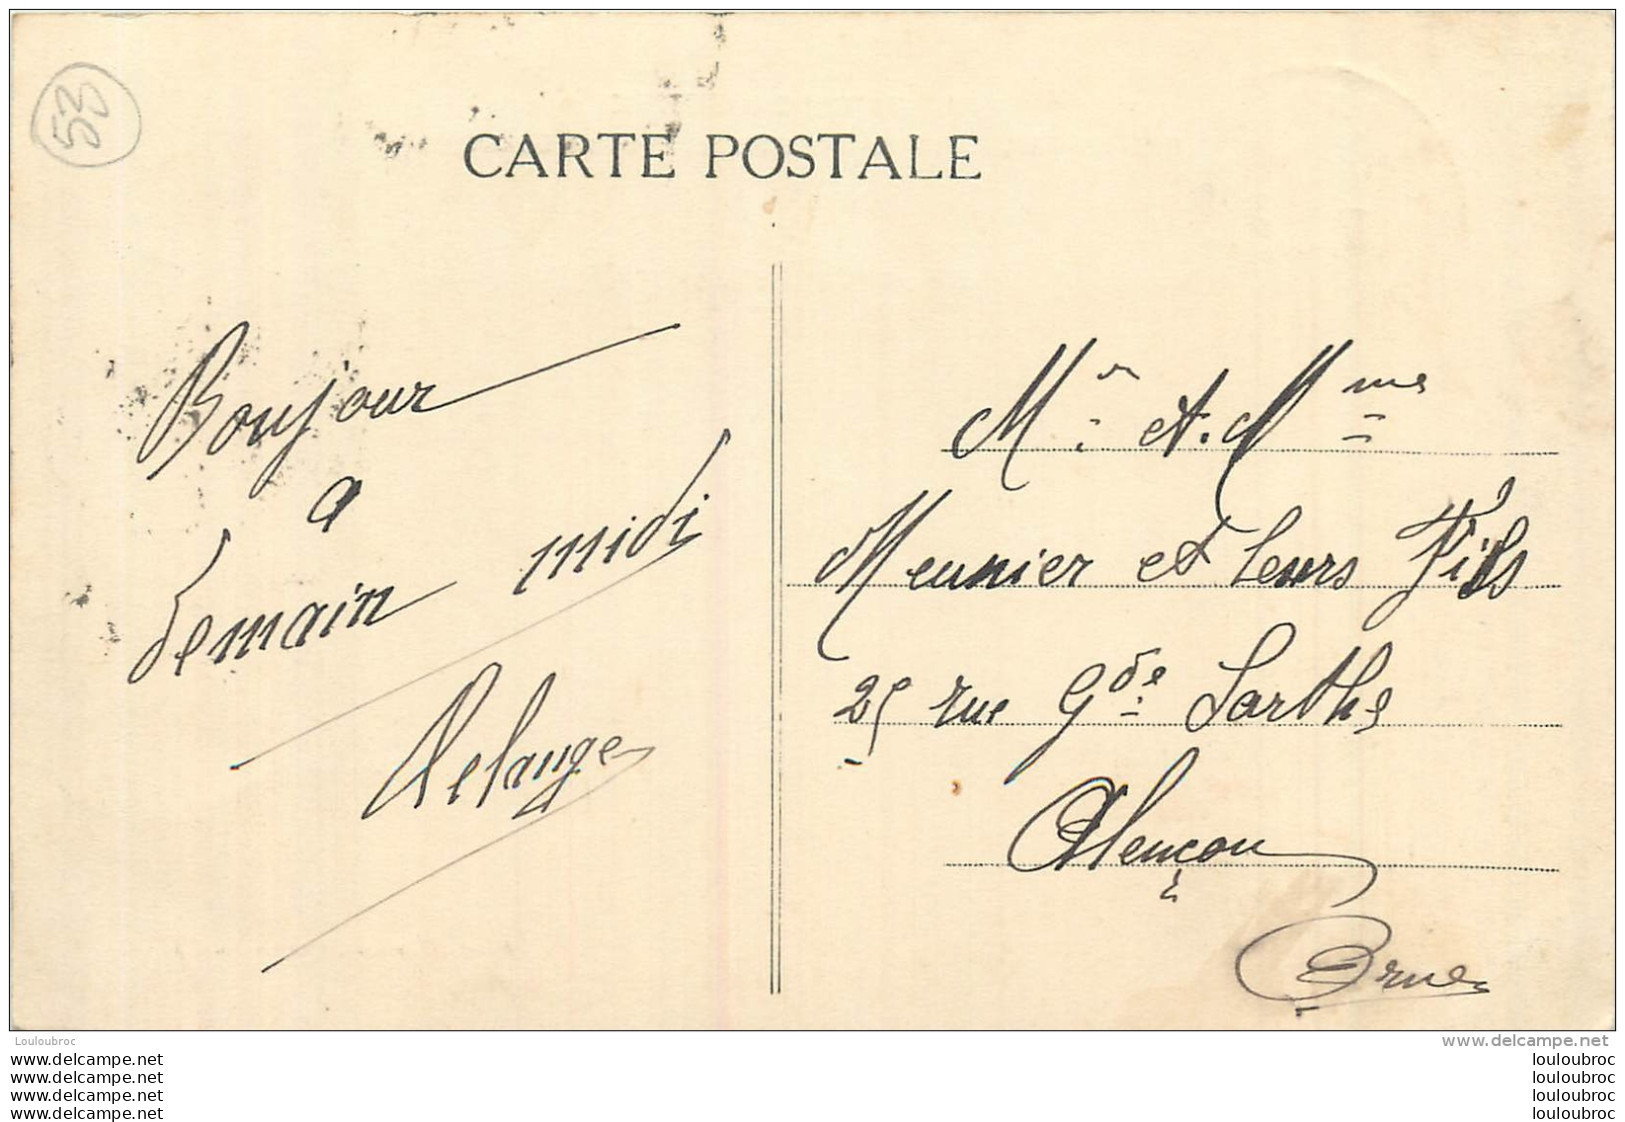 53
CARTE POSTALE
Bonjour
a
demain midi
Mr et Mme
Meunier et leurs Fils
25 rue Gde Sarthe
Alençon
Orne
Louloubroc
www.delcampe.net
www.delcampe.net
louloubroc
www.delcampe.net
louloubroc
www.delcampe.net
louloubroc
www.delcampe.net
louloubroc